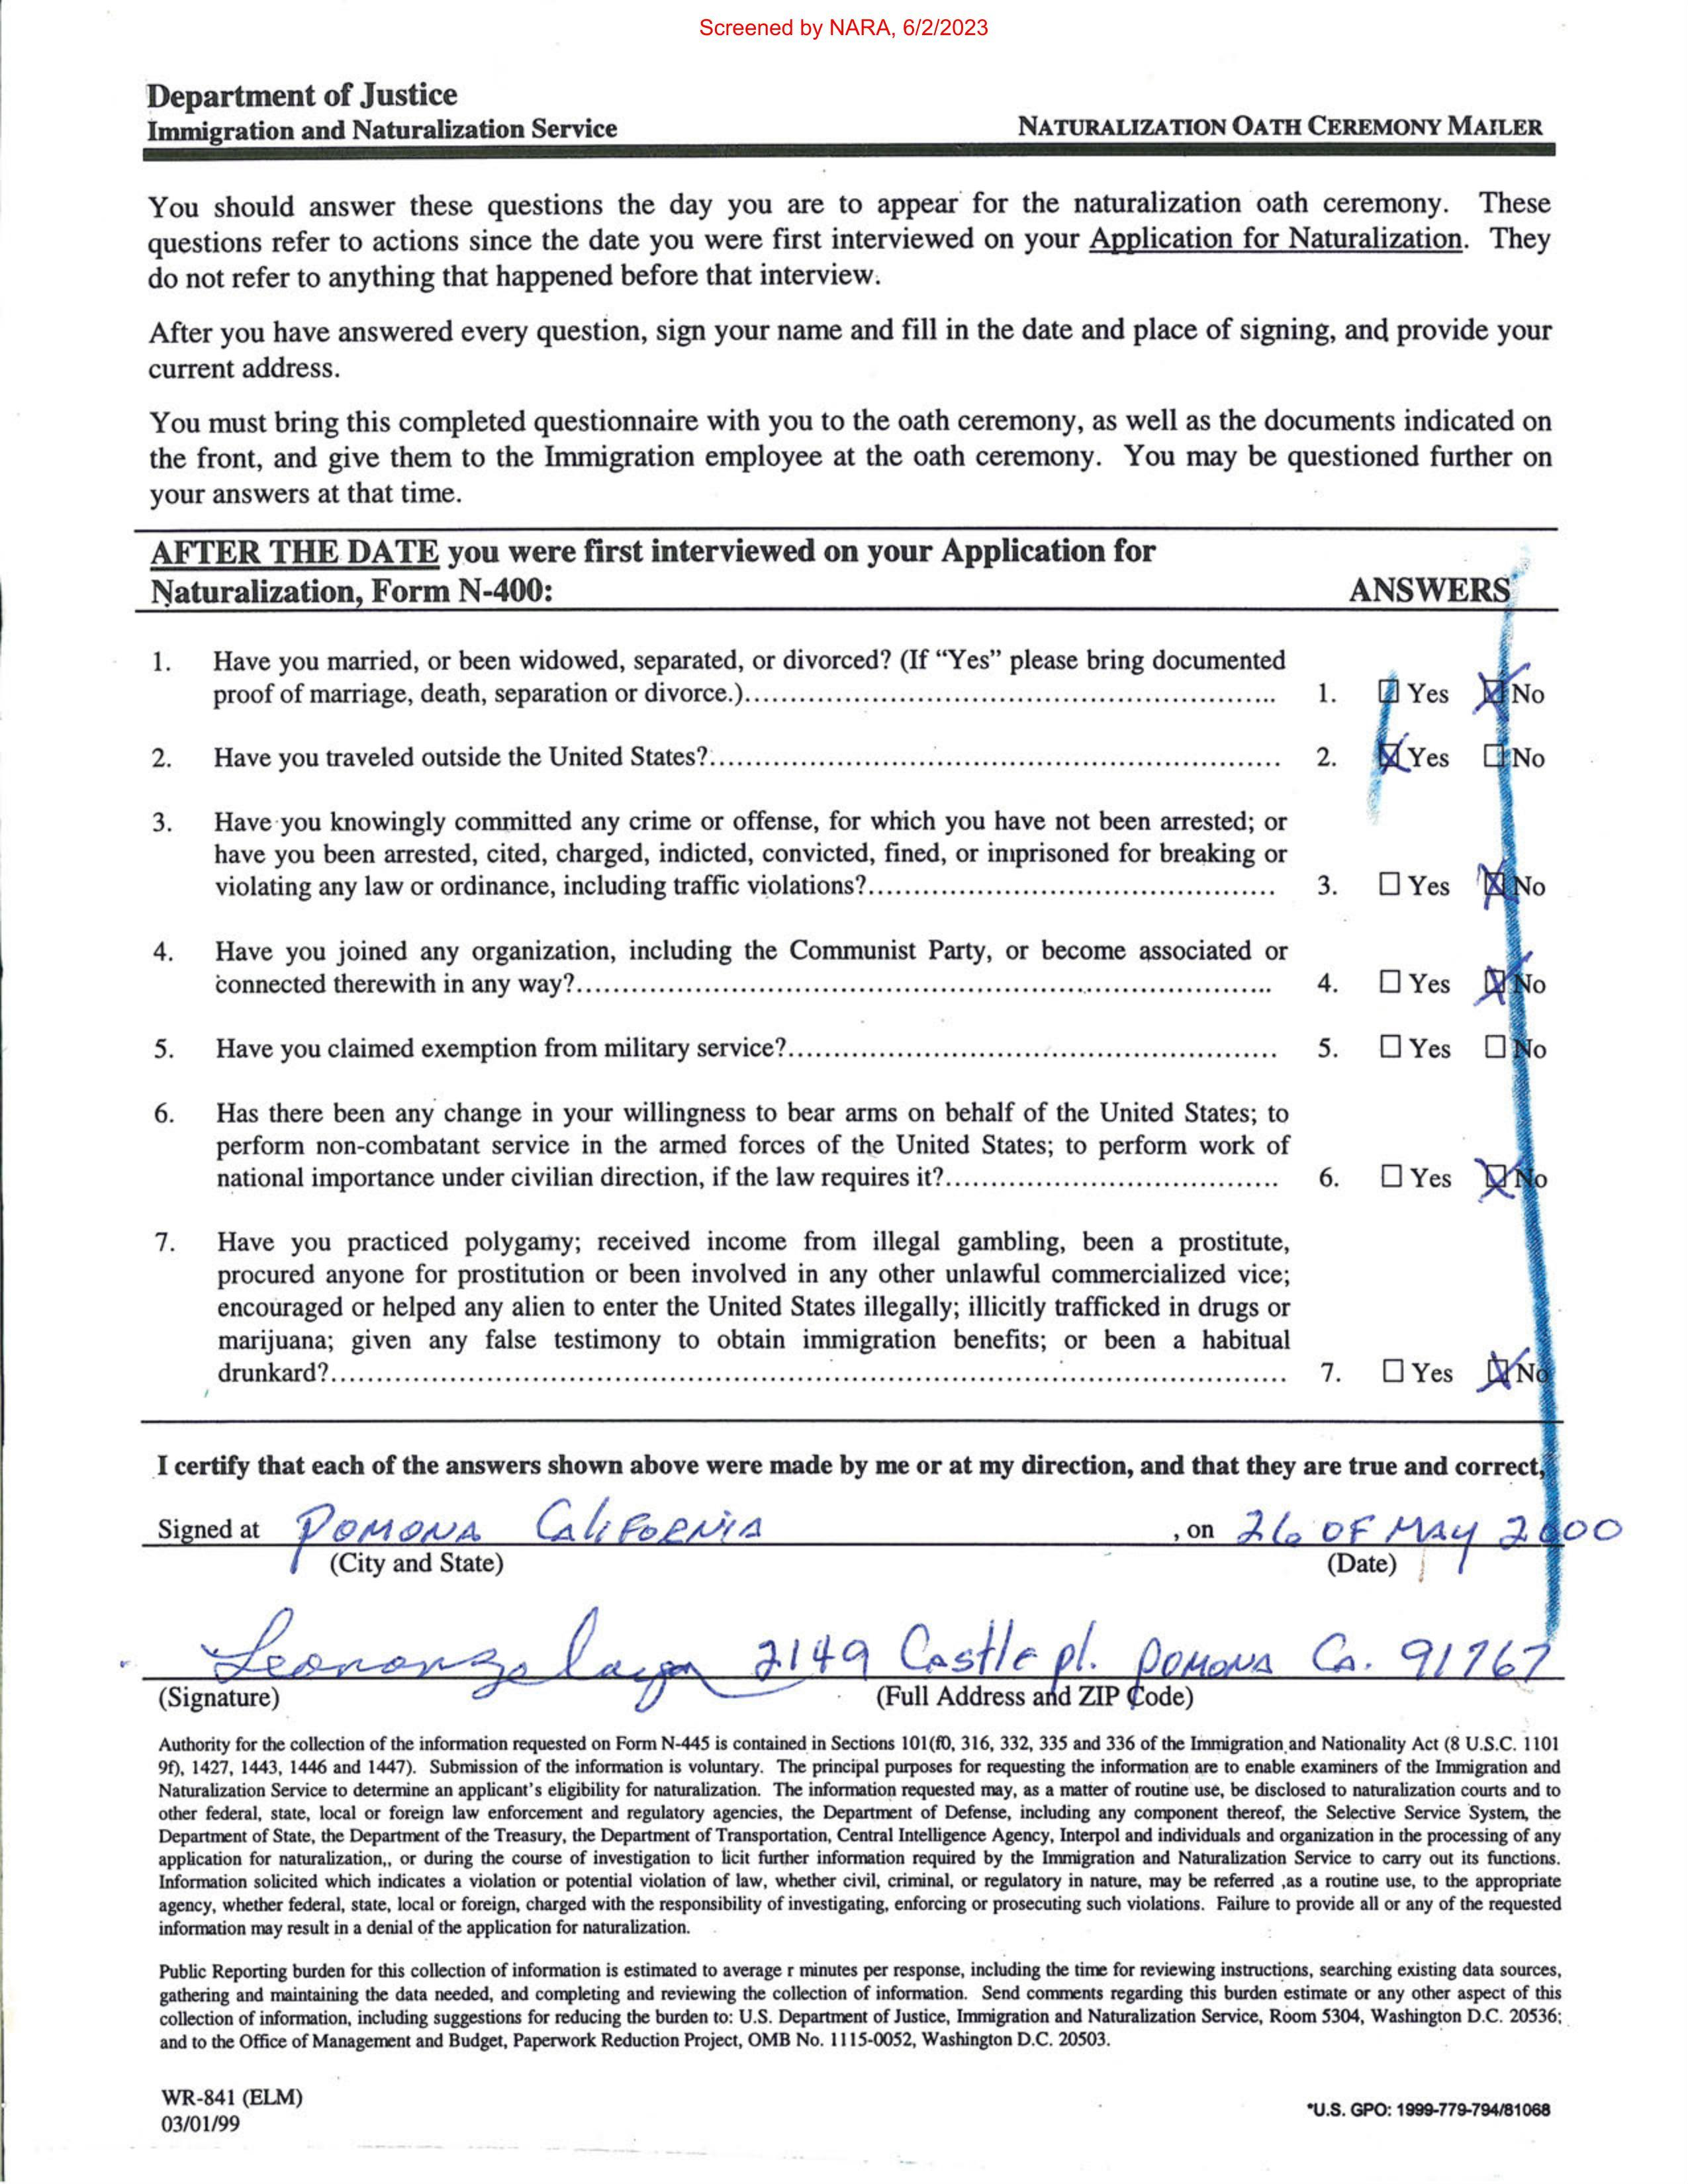 Screened by NARA, 6/2/2023
Department of Justice
Immigration and Naturalization Service
NATURALIZATION OATH CEREMONY MAILER
You should answer these questions the day you are to appear for the naturalization oath ceremony. These
questions refer to actions since the date you were first interviewed on your Application for Naturalization. They
do not refer to anything that happened before that interview.
After you have answered every question, sign your name and fill in the date and place of signing, and provide your
current address.
You must bring this completed questionnaire with you to the oath ceremony, as well as the documents indicated on
the front, and give them to the Immigration employee at the oath ceremony. You may be questioned further on
your answers at that time.
AFTER THE DATE you were first interviewed on your Application for
Naturalization, Form N-400: ANSWERS
1. Have you married, or been widowed, separated, or divorced? (If “Yes” please bring documented
proof of marriage, death, separation or divorce.)........ 1. ☐ Yes ☒ No
2. Have you traveled outside the United States?........ 2. ☒ Yes ☐ No
3. Have you knowingly committed any crime or offense, for which you have not been arrested; or
have you been arrested, cited, charged, indicted, convicted, fined, or imprisoned for breaking or
violating any law or ordinance, including traffic violations?........ 3. ☐ Yes ☒ No
4. Have you joined any organization, including the Communist Party, or become associated or
connected therewith in any way?........ 4. ☐ Yes ☒ No
5. Have you claimed exemption from military service?........ 5. ☐ Yes ☐ No
6. Has there been any change in your willingness to bear arms on behalf of the United States; to
perform non-combatant service in the armed forces of the United States; to perform work of
national importance under civilian direction, if the law requires it?........ 6. ☐ Yes ☒ No
7. Have you practiced polygamy; received income from illegal gambling, been a prostitute,
procured anyone for prostitution or been involved in any other unlawful commercialized vice;
encouraged or helped any alien to enter the United States illegally; illicitly trafficked in drugs or
marijuana; given any false testimony to obtain immigration benefits; or been a habitual
drunkard?........ 7. ☐ Yes ☒ No
I certify that each of the answers shown above were made by me or at my direction, and that they are true and correct,
Signed at POMONA CALIFORNIA , on 26 OF MAY 2000
(City and State) (Date)
2149 Castle pl. POMONA Ca. 91767
(Signature) (Full Address and ZIP Code)
Authority for the collection of the information requested on Form N-445 is contained in Sections 101(f0, 316, 332, 335 and 336 of the Immigration and Nationality Act (8 U.S.C. 1101
9f), 1427, 1443, 1446 and 1447). Submission of the information is voluntary. The principal purposes for requesting the information are to enable examiners of the Immigration and
Naturalization Service to determine an applicant’s eligibility for naturalization. The information requested may, as a matter of routine use, be disclosed to naturalization courts and to
other federal, state, local or foreign law enforcement and regulatory agencies, the Department of Defense, including any component thereof, the Selective Service System, the
Department of State, the Department of the Treasury, the Department of Transportation, Central Intelligence Agency, Interpol and individuals and organization in the processing of any
application for naturalization,, or during the course of investigation to licit further information required by the Immigration and Naturalization Service to carry out its functions.
Information solicited which indicates a violation or potential violation of law, whether civil, criminal, or regulatory in nature, may be referred ,as a routine use, to the appropriate
agency, whether federal, state, local or foreign, charged with the responsibility of investigating, enforcing or prosecuting such violations. Failure to provide all or any of the requested
information may result in a denial of the application for naturalization.
Public Reporting burden for this collection of information is estimated to average r minutes per response, including the time for reviewing instructions, searching existing data sources,
gathering and maintaining the data needed, and completing and reviewing the collection of information. Send comments regarding this burden estimate or any other aspect of this
collection of information, including suggestions for reducing the burden to: U.S. Department of Justice, Immigration and Naturalization Service, Room 5304, Washington D.C. 20536;
and to the Office of Management and Budget, Paperwork Reduction Project, OMB No. 1115-0052, Washington D.C. 20503.
WR-841 (ELM)
03/01/99
*U.S. GPO: 1999-779-794/81068